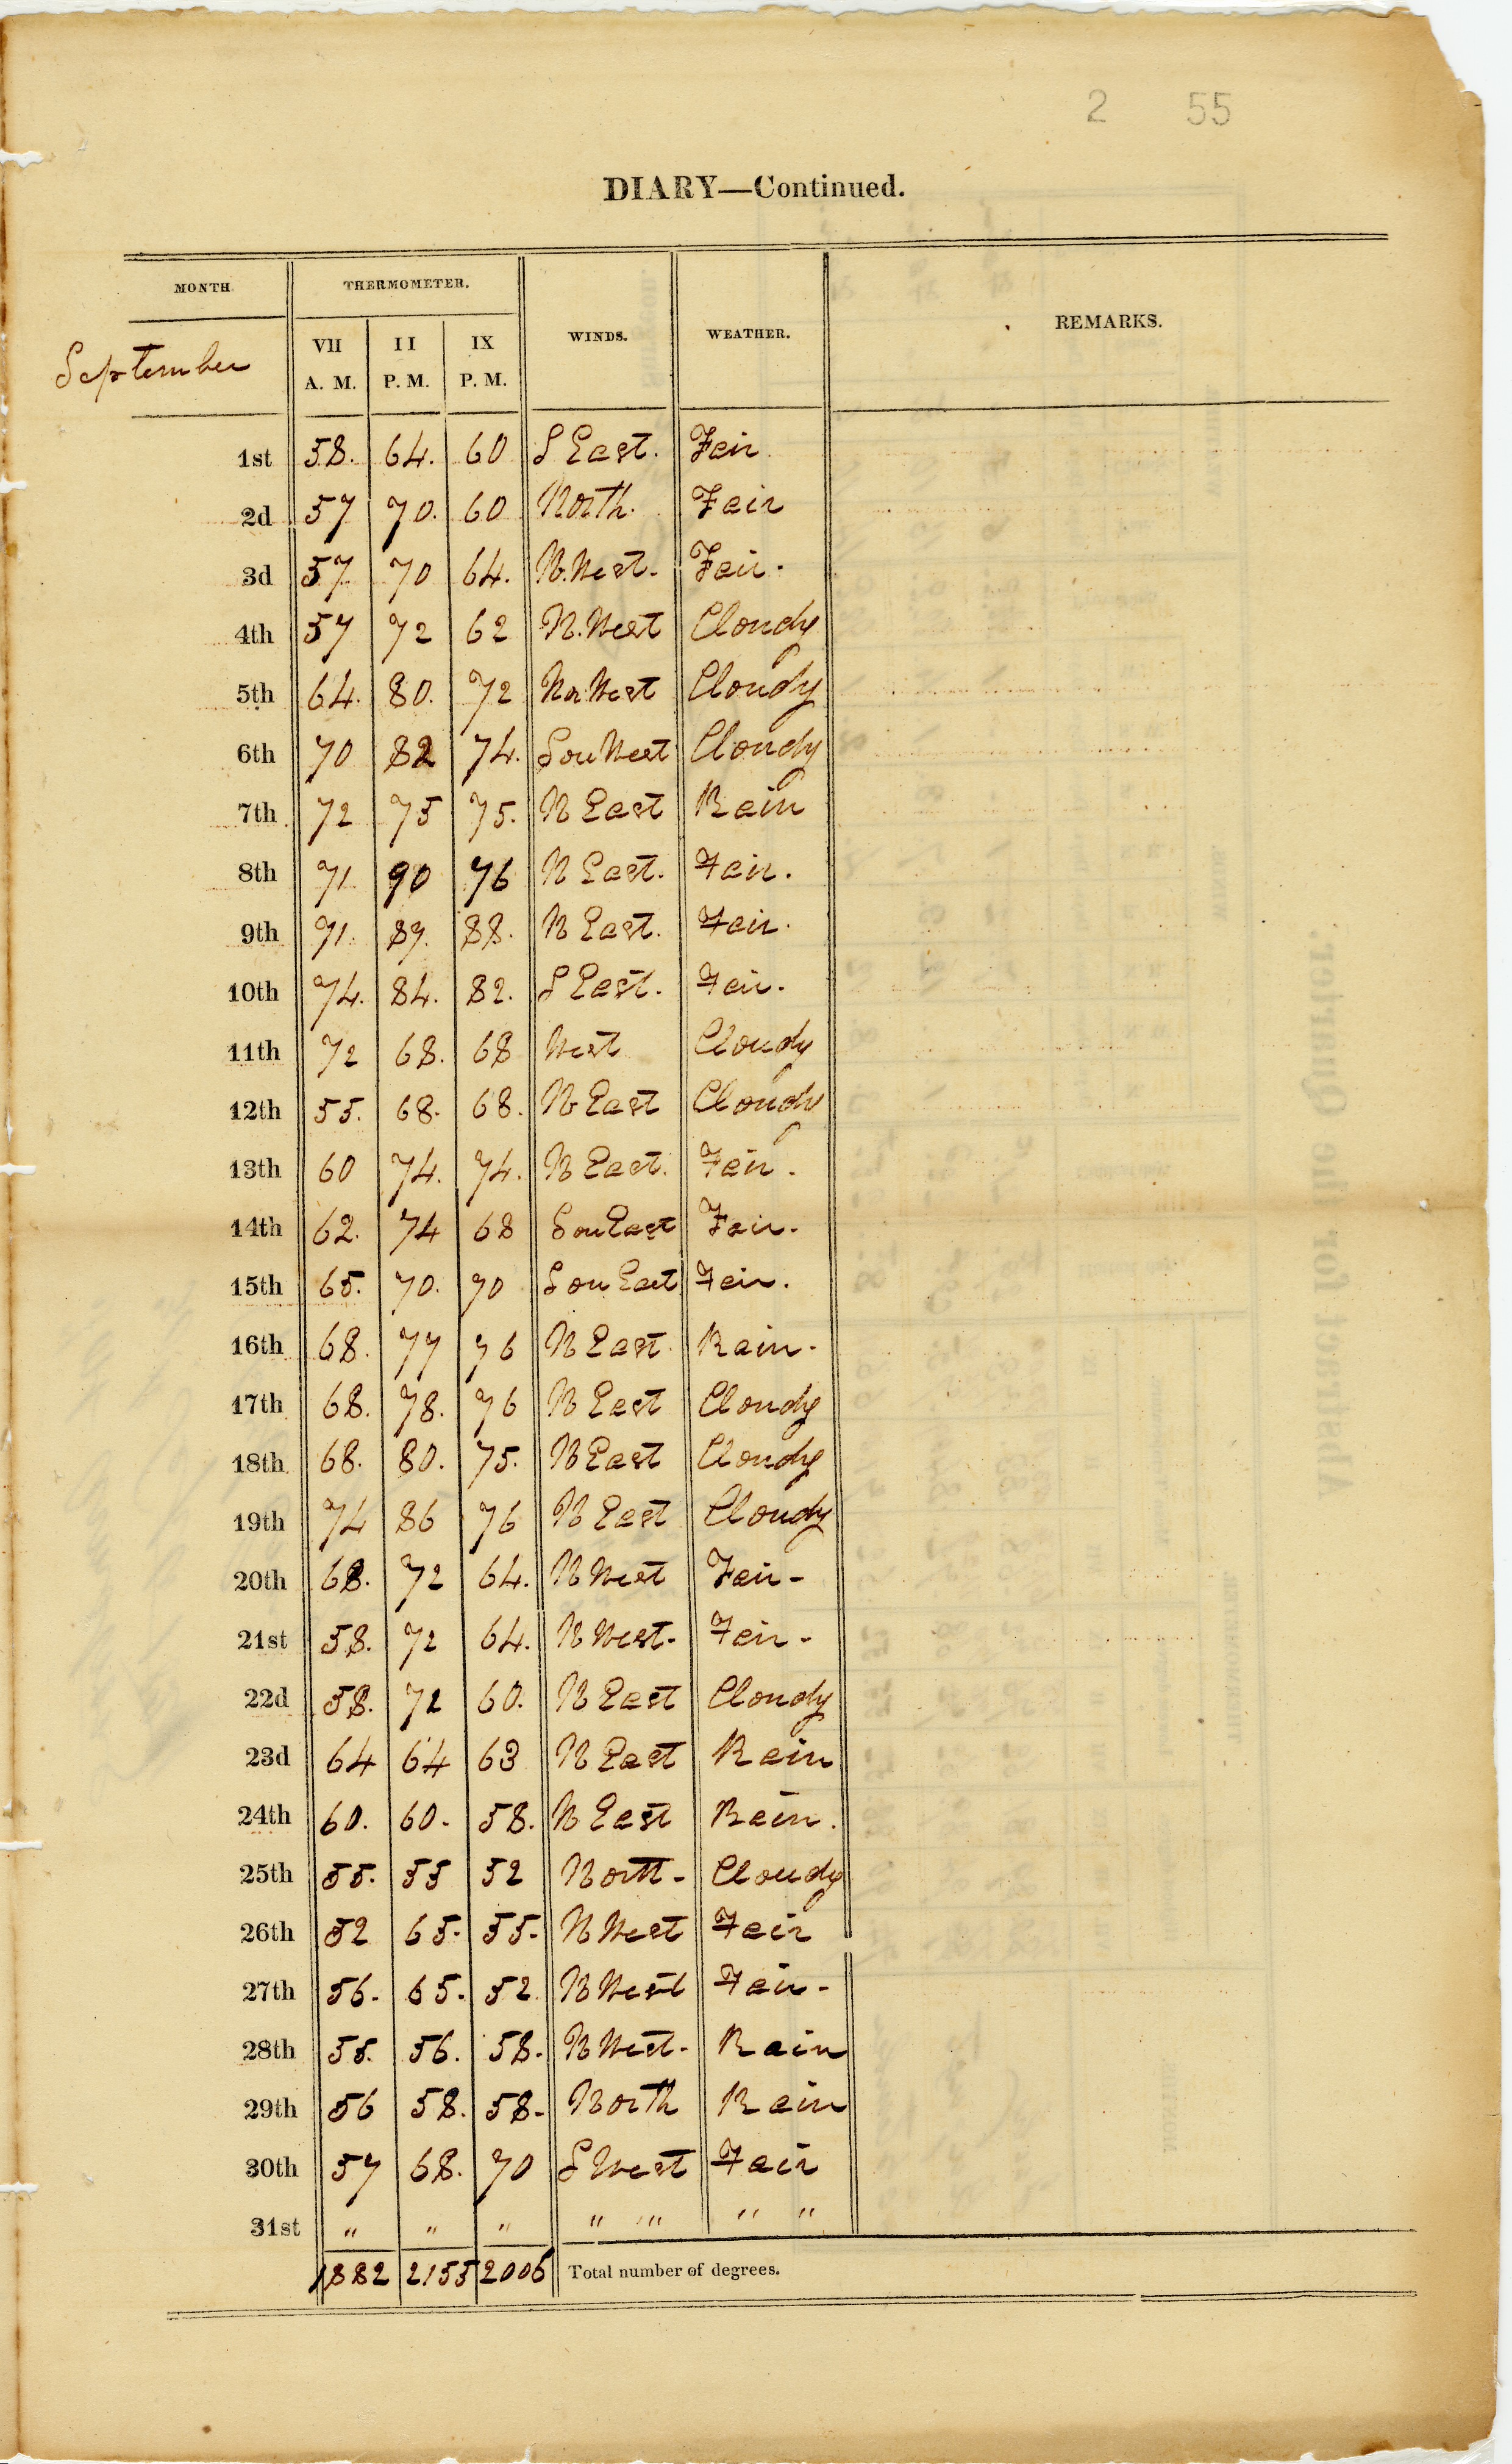 2 55
DIARY—Continued.
MONTH THERMOMETER. WINDS. WEATHER. REMARKS.
September
VII II IX
A. M. P. M. P. M.
1st 58. 64. 60 S East. Fair.
2d 57 70. 60 North. Fair
3d 57 70 64. N. West. Fair.
4th 57 72 62 N. West Cloudy
5th 64. 80. 72 Nor West Cloudy
6th 70 82 74. Sou West Cloudy
7th 72 75 75. N East Rain
8th 71 90 76 N East. Fair.
9th 71. 89. 88. N East. Fair.
10th 74. 84. 82. S East. Fair.
11th 72 68. 68 West Cloudy
12th 55. 68. 68. N East Cloudy
13th 60 74. 74. N East. Fair.
14th 62. 74 68 Sou East Fair.
15th 65. 70. 70 Sou East Fair.
16th 68. 77 76 N East. Rain.
17th 68. 78. 76 N East Cloudy
18th 68. 80. 75. N East Cloudy
19th 74 86 76 N East Cloudy
20th 68. 72 64. N West Fair-
21st 58. 72 64. N West- Fair-
22d 58. 72 60. N East Cloudy
23d 64 64 63 N East Rain
24th 60. 60. 58. N East Rain.
25th 55. 55 52 North- Cloudy
26th 52 65. 55. N West Fair
27th 56. 65. 52 N West Fair-
28th 55. 56. 58. N West- Rain
29th 56 58. 58- North Rain
30th 57 68. 70 S West Fair
31st " " " " " " "
1882 2155 2006 Total number of degrees.